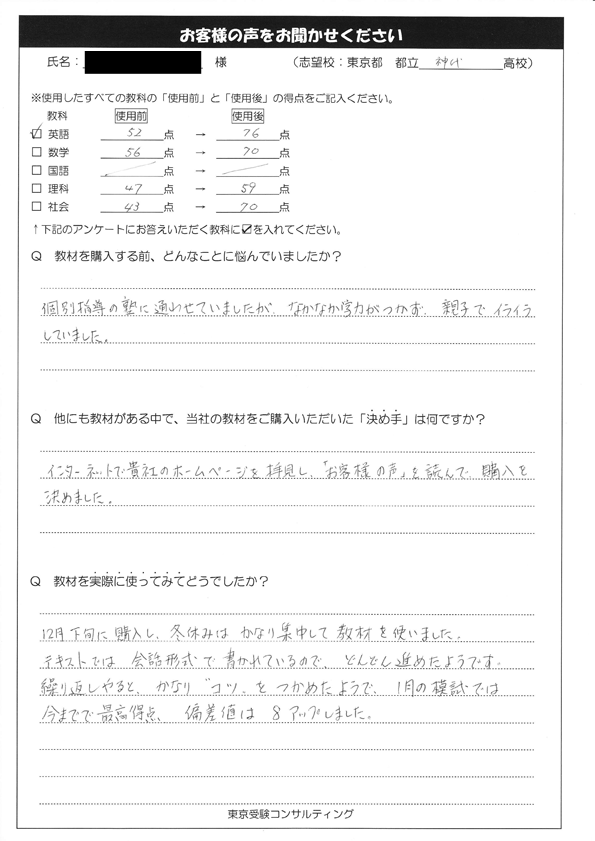 お客様の声をお聞かせください
氏名： 様 （志望校：東京都 都立 神代 高校）
※使用したすべての教科の「使用前」と「使用後」の得点をご記入ください。
教科 使用前 使用後
☑ 英語 52 点 → 76 点
□ 数学 56 点 → 70 点
□ 国語 ／ 点 → ／ 点
□ 理科 47 点 → 59 点
□ 社会 43 点 → 70 点
↑下記のアンケートにお答えいただく教科に☑を入れてください。
Q 教材を購入する前、どんなことに悩んでいましたか？
個別指導の塾に通わせていましたが、なかなか学力がつかず、親子でイライラ
していました。
Q 他にも教材がある中で、当社の教材をご購入いただいた「決め手」は何ですか？
インターネットで貴社のホームページを拝見し、「お客様の声」を読んで、購入を
決めました。
Q 教材を実際に使ってみてどうでしたか？
12月下旬に購入し、冬休みは かなり集中して 教材を使いました。
テキストでは 会話形式で書かれているので、どんどん進めたようです。
繰り返しやると、かなり"コツ"をつかめたようで、1月の模試では
今までで最高得点、偏差値は 8アップしました。
東京受験コンサルティング